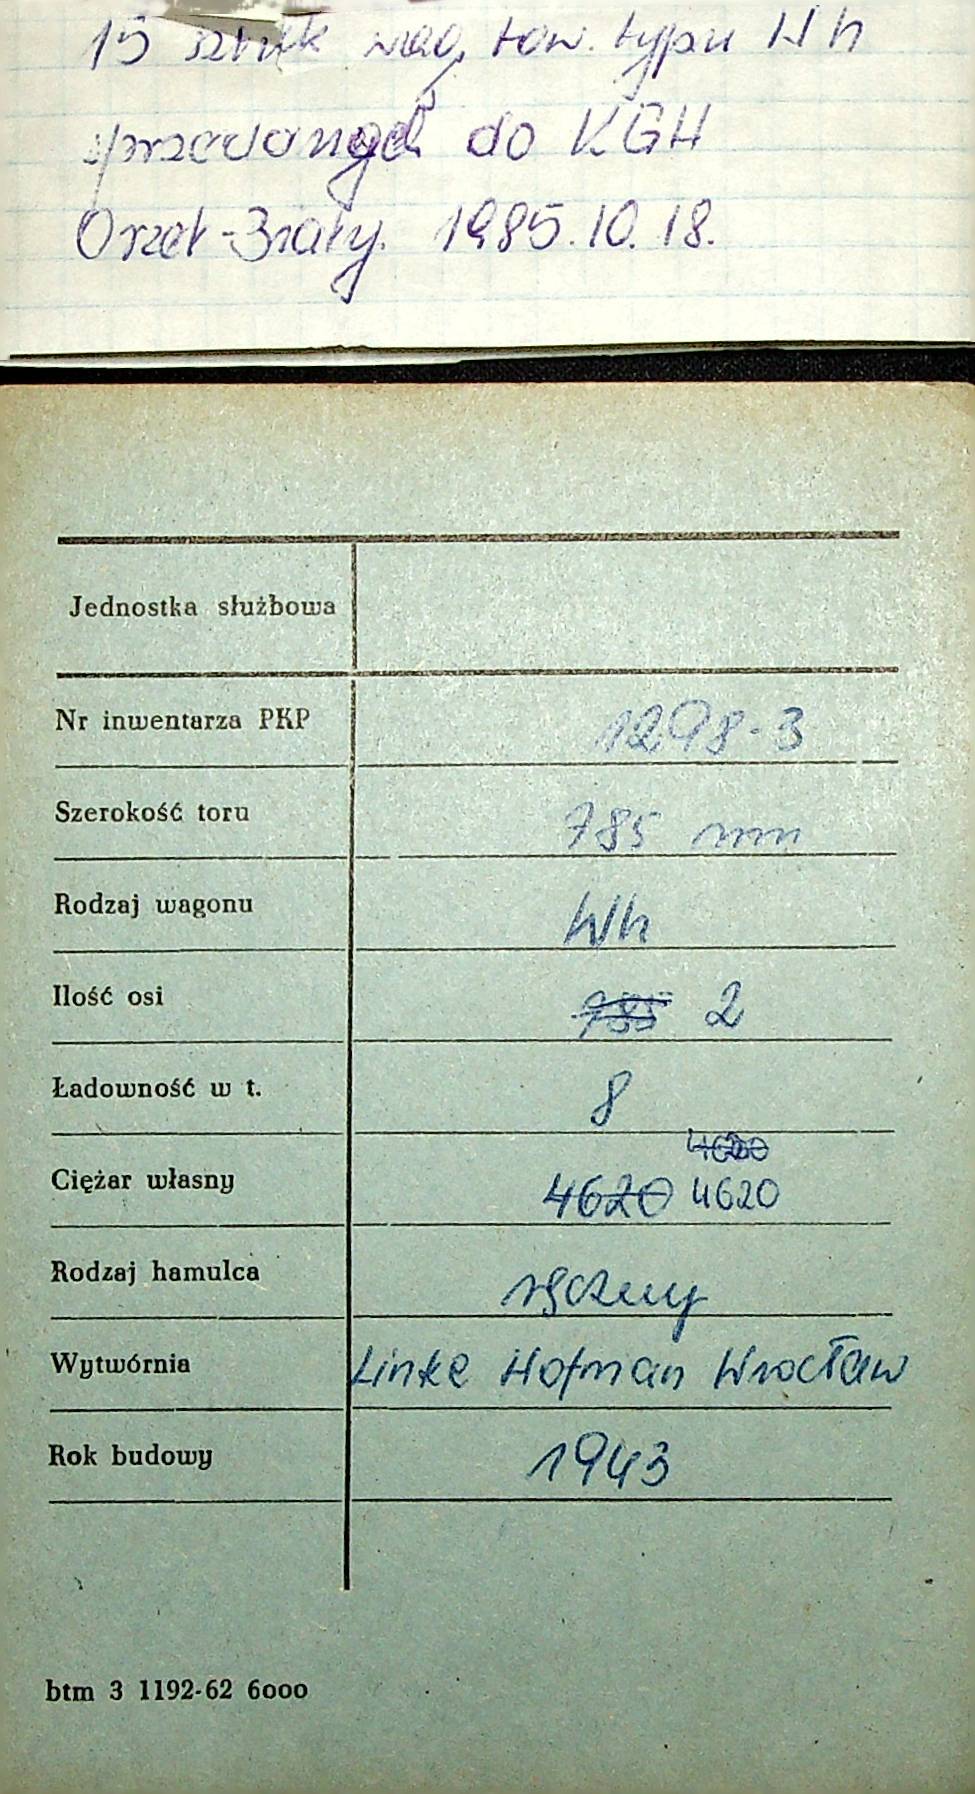 15 sztuk wag. tow. typu Wh
sprzedanych do KGH
Orzeł-Biały. 1985.10.18.
Jednostka służbowa
Nr inwentarza PKP 1298-3
Szerokość toru 785 mm
Rodzaj wagonu Wh
Ilość osi 785 2
Ładowność w t. 8
4620
Ciężar własny 4620 4620
Rodzaj hamulca ręczny
Wytwórnia Linke Hofman Wrocław
Rok budowy 1943
btm 3 1192-62 6ooo